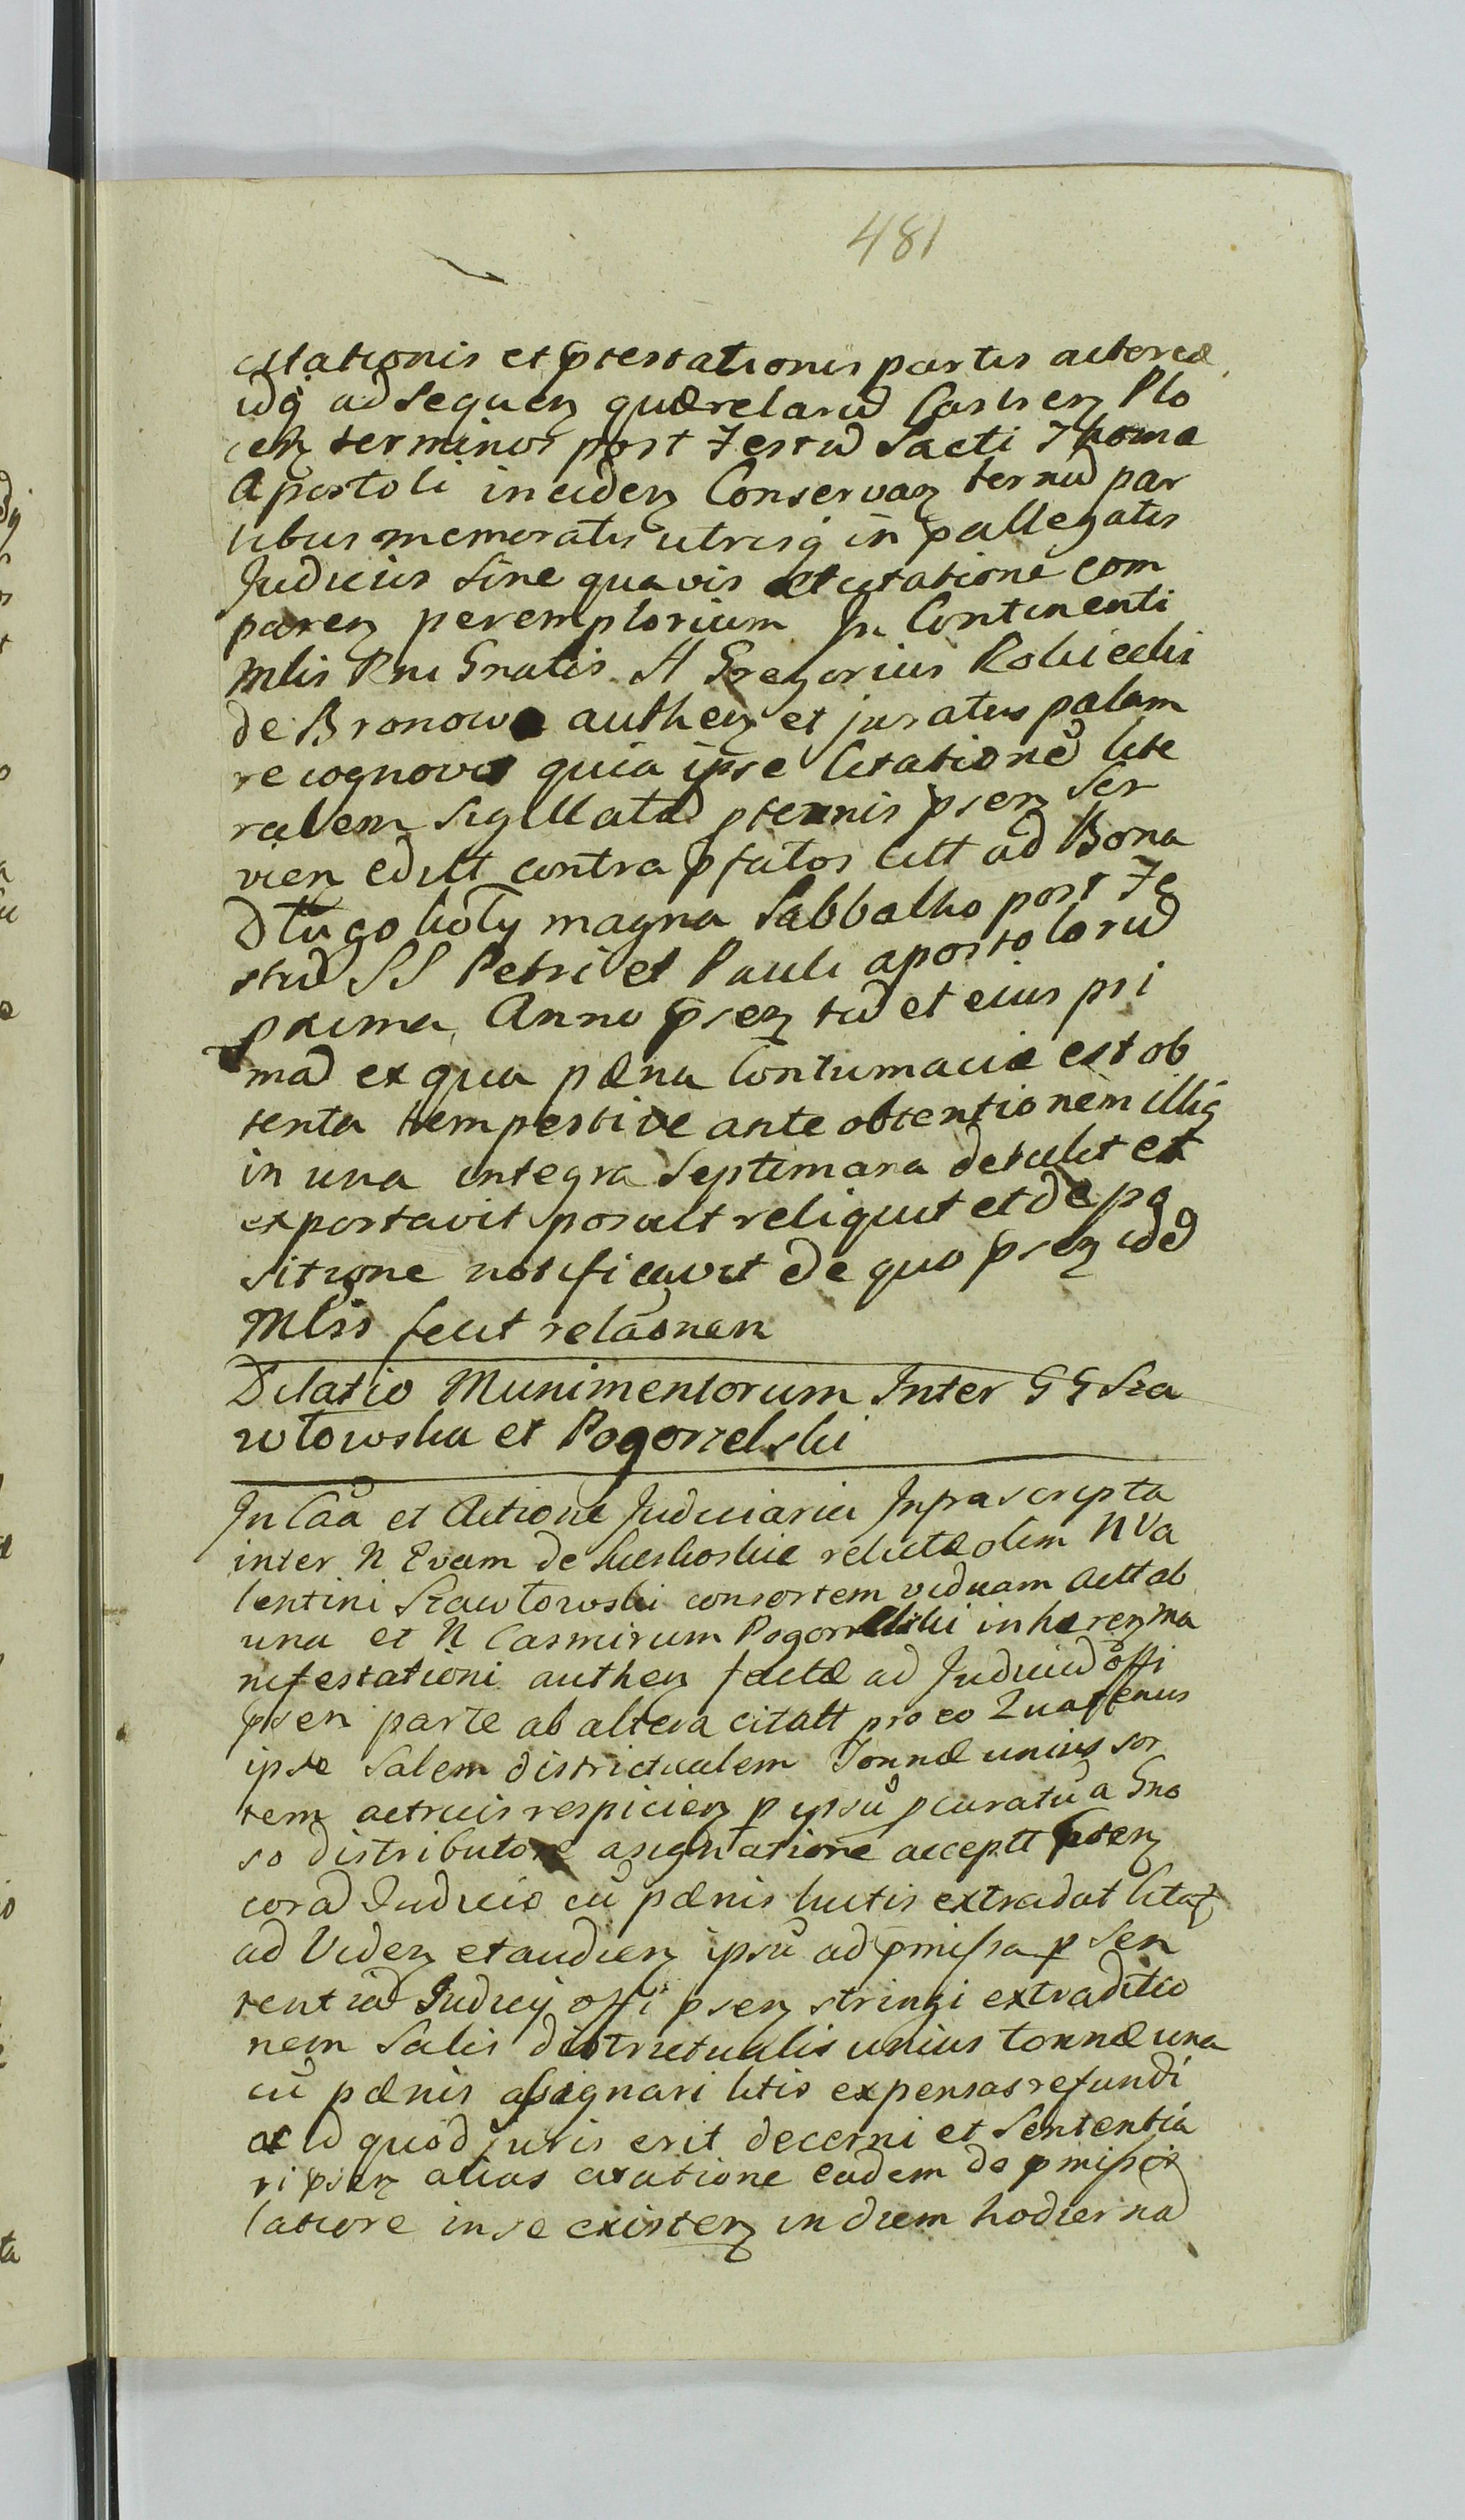 481
citationis et ptestationis partis actoreæ
idq ad sequen quærelarū Castren Plo
cen terminos post Festū Sacti Thoma
Apostoli inciden Conservan ternū par
tibus memoratis utrisq in pallegatis
Judiciis sine quavis citatione com
paren peremptorium In Continenti
Mlis Rni Gnalis H Gregorius Robicelri
de Bronowo authen et juratus palam
recognovit quia ipse Citationē lite
ralem sigillatā pternis psen Ser
vien edilt contra pfatos citt ad Bona
Długokoty magna Sabbatho post Fe
stū SS Petri et Pauli apostolorū
proxima Anno psen tū et eius pri
mā ex qua pæna Contumaciæ est ob
tenta tempestive ante obtentionem illiq
in una integra Septimana detulit et
exportavit posuit reliquit et de po
sitione notificavit de quo psen idē
Mlis fecit relaōnem
Dilatio Munimentorum Inter GG Sza
włowska et Pogorzelski
In Caā et Actione Judiciaria Infrascripta
inter N Evam de relictæ olim N Va
lentini Szawłowski consortem viduam actt ab
una et N Casmirum Pogorzelski inhæren ma
nifestationi authen factæ ad Judiciū offi
psen parte ab altera citatt pro eo Quatenus
ipse Salem districtualem Tonnæ unius sor
tem actricis respicien p ipsū pcuratū a Gno
so distributore asignatione acceptt psen
corā Judicio cū pænis luctis extradat Citat
ad Viden et audien ipsū ad pmissa p sen
tentiā Judicij offi psen stringi extraditio
nem Salis districtualis unius tonnæ una
cū pænis assignari litis expensas refundi
et id quod juris erit decerni et sententia
ri psen alias citatione eadem de pmissis
latiore in se existen in diem hodiernā